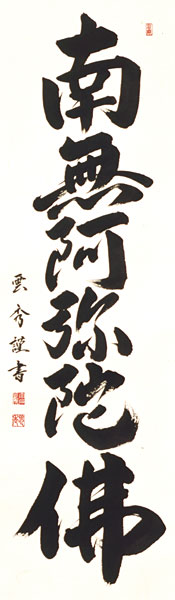 南無阿弥陀佛
雲秀謹書